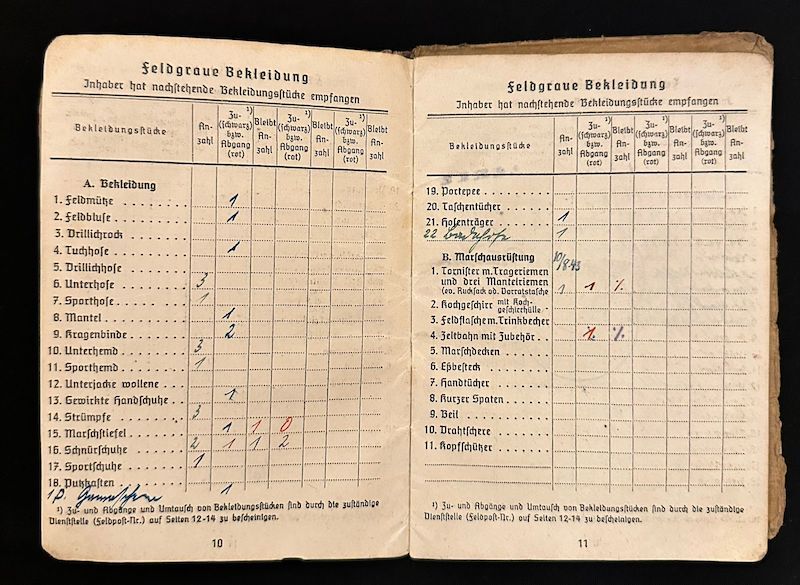 Feldgraue Bekleidung
Inhaber hat nachstehende Bekleidungsstücke empfangen
Bekleidungsstücke An- zahl Zu- ¹) (schwarz) bzw. Abgang (rot) Bleibt An- zahl Zu- ¹) (schwarz) bzw. Abgang (rot) Bleibt An- zahl Zu- ¹) (schwarz) bzw. Abgang (rot) Bleibt An- zahl
A. Bekleidung
1. Feldmütze 1
2. Feldbluse 1
3. Drillichrock
4. Tuchhose 1
5. Drillichhose
6. Unterhose 3
7. Sporthose 1
8. Mantel 1
9. Kragenbinde 2
10. Unterhemd 3
11. Sporthemd 1
12. Unterjacke wollene
13. Gewirkte Handschuhe 1
14. Strümpfe 3
15. Marschstiefel 1 1 0
16. Schnürschuhe 2 1 1 2
17. Sportschuhe 1
18. Putzkasten
1 P. Gamaschen 1
¹) Zu- und Abgänge und Umtausch von Bekleidungsstücken sind durch die zuständige
Dienststelle (Feldpost-Nr.) auf Seiten 12-14 zu bescheinigen.
10
Feldgraue Bekleidung
Inhaber hat nachstehende Bekleidungsstücke empfangen
Bekleidungsstücke An- zahl Zu- ¹) (schwarz) bzw. Abgang (rot) Bleibt An- zahl Zu- ¹) (schwarz) bzw. Abgang (rot) Bleibt An- zahl Zu- ¹) (schwarz) bzw. Abgang (rot) Bleibt An- zahl
19. Portepee
20. Taschentücher
21. Hosenträger 1
22 Badehose 1
B. Marschausrüstung 10/8.43
1. Tornister m. Trageriemen
und drei Mantelriemen
(ev. Rucksack od. Vorratstasche 1 1 %
2. Kochgeschirr mit Koch-
geschirrhülle
3. Feldflasche m. Trinkbecher
4. Zeltbahn mit Zubehör 1. %
5. Marschdecken
6. Eßbesteck
7. Handtücher
8. Kurzer Spaten
9. Beil
10. Drahtschere
11. Kopfschützer
¹) Zu- und Abgänge und Umtausch von Bekleidungsstücken sind durch die zuständige
Dienststelle (Feldpost-Nr.) auf Seiten 12-14 zu bescheinigen.
11